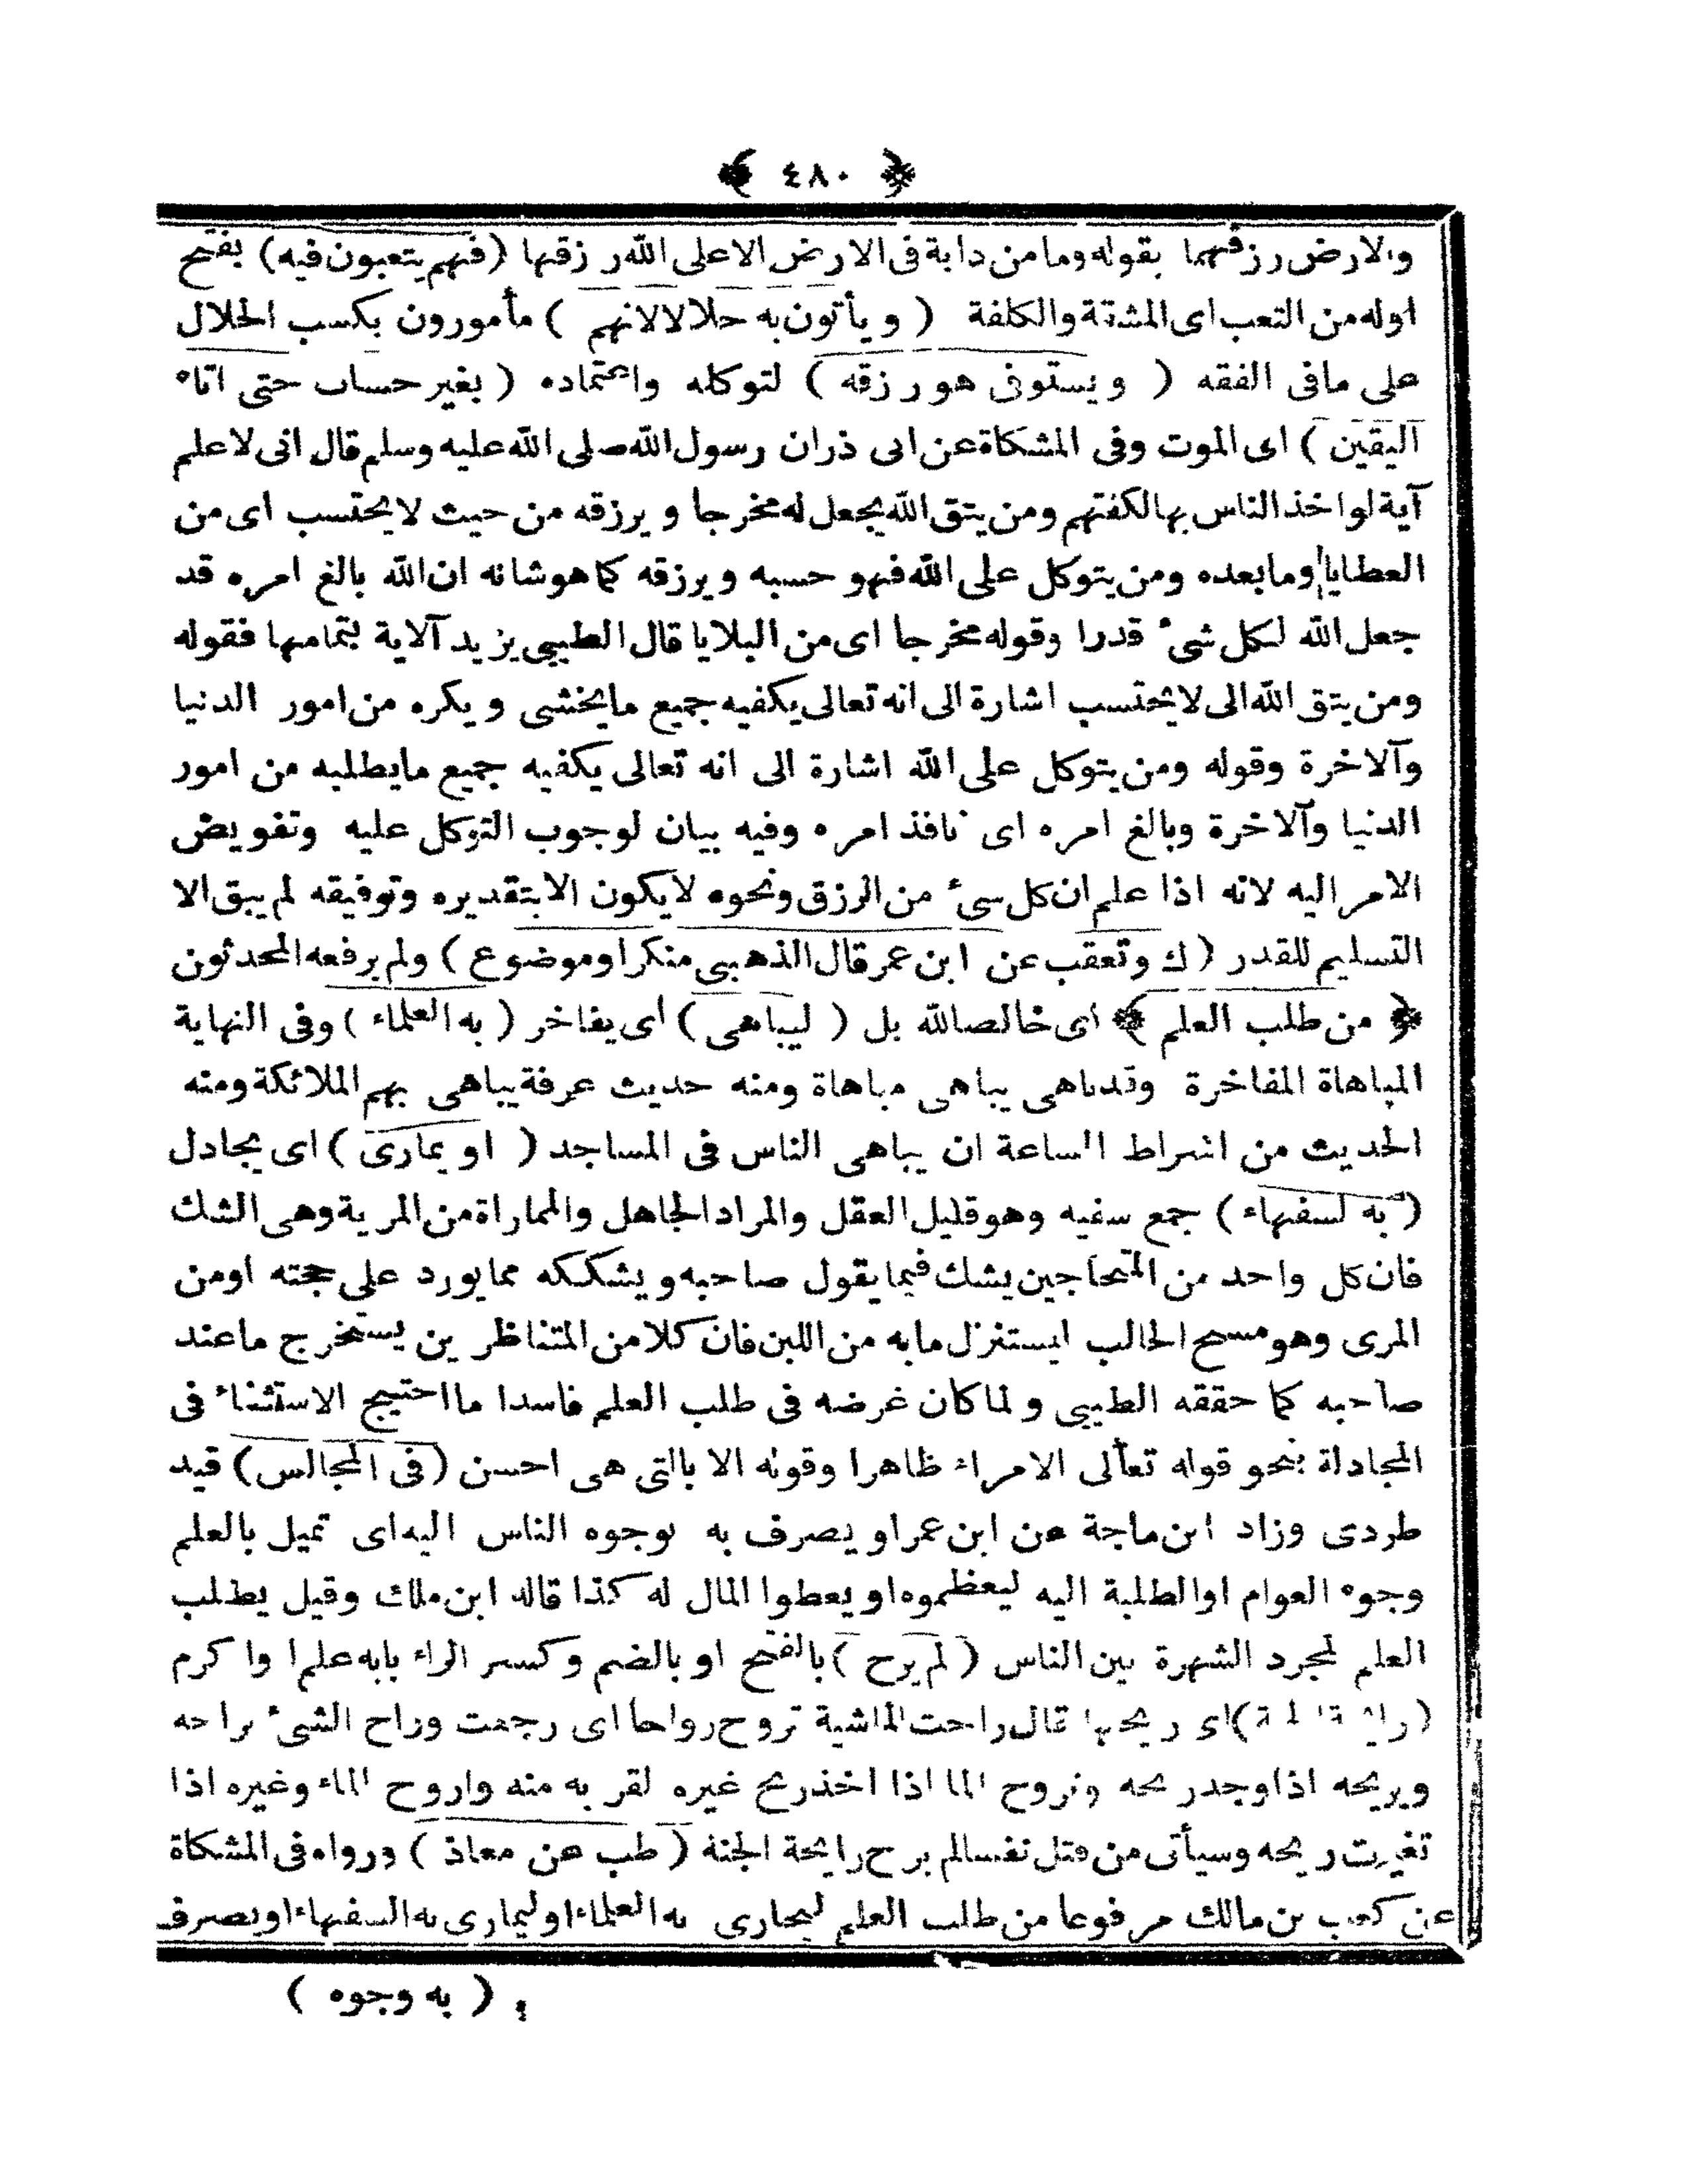 ﴿ ٤٨٠ ﴾
والارض رزقهما بقوله وما من دابة فى الارض الا على الله رزقها (فهم يتعبون فيه) بفتح
اوله من التعب اى المشقة والكلفة ( ويأتون به حلالا لانهم ) مأمورون بكسب الحلال
على ما فى الفقه ( ويستوفى هو رزقه ) لتوكله واعتماده ( بغير حساب حتى اتاه
اليقين ) اى الموت وفى المشكاة عن ابى ذر ان رسول الله صلى الله عليه وسلم قال انى لاعلم
آية لو اخذ الناس بها لكفتهم ومن يتق الله يجعل له مخرجا ويرزقه من حيث لا يحتسب اى من
العطايا وما بعده ومن يتوكل على الله فهو حسبه ويرزقه كما هو شانه ان الله بالغ امره قد
جعل الله لكل شىء قدرا وقوله مخرجا اى من البلايا قال الطيبى يزيد آلاية بتمامها فقوله
ومن يتق الله الى لا يحتسب اشارة الى انه تعالى يكفيه جميع ما يخشى ويكره من امور الدنيا
وآلاخرة وقوله ومن يتوكل على الله اشارة الى انه تعالى يكفيه جميع ما يطلبه من امور
الدنيا وآلاخرة وبالغ امره اى نافذ امره وفيه بيان لوجوب التوكل عليه وتفويض
الامر اليه لانه اذا علم ان كل شىء من الرزق ونحوه لا يكون الا بتقديره وتوفيقه لم يبق الا
التسليم للقدر ( ك وتعقب عن ابن عمر قال الذهبى منكر او موضوع ) ولم يرفعه المحدثون
﴿ من طلب العلم ﴾ اى خالصا لله بل ( ليباهى ) اى يفاخر ( به العلماء ) وفى النهاية
المباهاة المفاخرة وقد باهى يباهى مباهاة ومنه حديث عرفة يباهى بهم الملائكة ومنه
الحديث من اشراط الساعة ان يباهى الناس فى المساجد ( او يمارى ) اى يجادل
( به لسفهاء ) جمع سفيه وهو قليل العقل والمراد الجاهل والمماراة من المرية وهى الشك
فان كل واحد من المتحاجين يشك فيما يقول صاحبه ويشككه مما يورد على حجته او من
المرى وهو مسح الحالب ليستنزل ما به من اللبن فان كلا من المتناظرين يستخرج ما عند
صاحبه كما حققه الطيبى ولما كان غرضه فى طلب العلم فاسدا ما احتيج الاستثناء فى
المجادلة بنحو قوله تعالى الا مراء ظاهرا وقوله الا بالتى هى احسن (فى المجالس) قيد
طردى وزاد ابن ماجة عن ابن عمر او يصرف به لوجوه الناس اليه اى تميل بالعلم
وجوه العوام او الطلبة اليه ليعظموه او يعطوا المال له كذا قاله ابن ملك وقيل يطلب
العلم لمجرد الشهرة بين الناس ( لم يرح ) بالفتح او بالضم وكسر الراء بابه علم او اكرم
( اى ريحها قال راحت الماشية تروح رواحا اى رجعت وراح الشىء براحه
ويريحه اذا وجد ريحه وتروح الما اذا اخذ ريح غيره لقربه منه واروح الماء وغيره اذا
تغيرت ريحه وسيأتى من قتل نفسا لم يرح رايحة الجنة ( طب عن معاذ ) ورواه فى المشكاة
عن كعب بن مالك مرفوعا من طلب العلم ليجارى به العلماء او ليمارى به السفهاء او يصرف
( به وجوه )